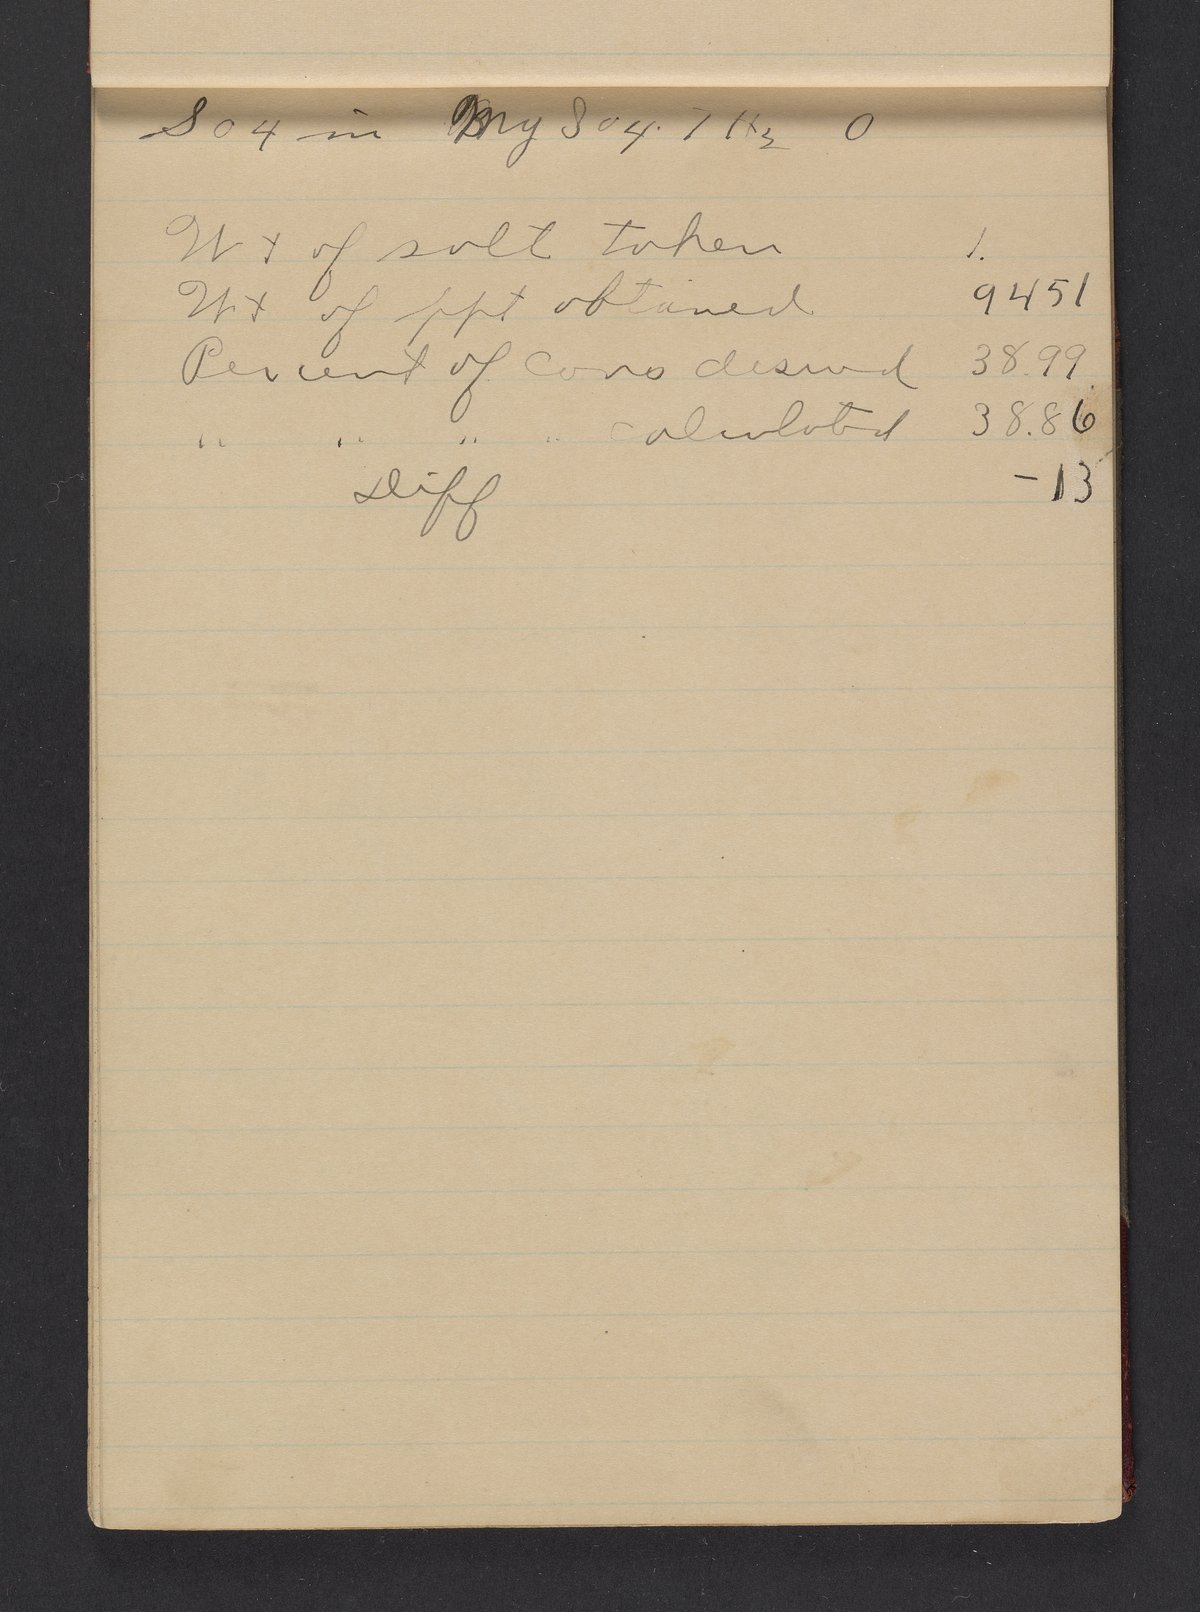 SO4 in MgSO4. 7H2 O
Wt of salt taken 1.
Wt of ppt obtained 9451
Percent of cons desired 38.99
" " " " calculated 38.86
Diff -13